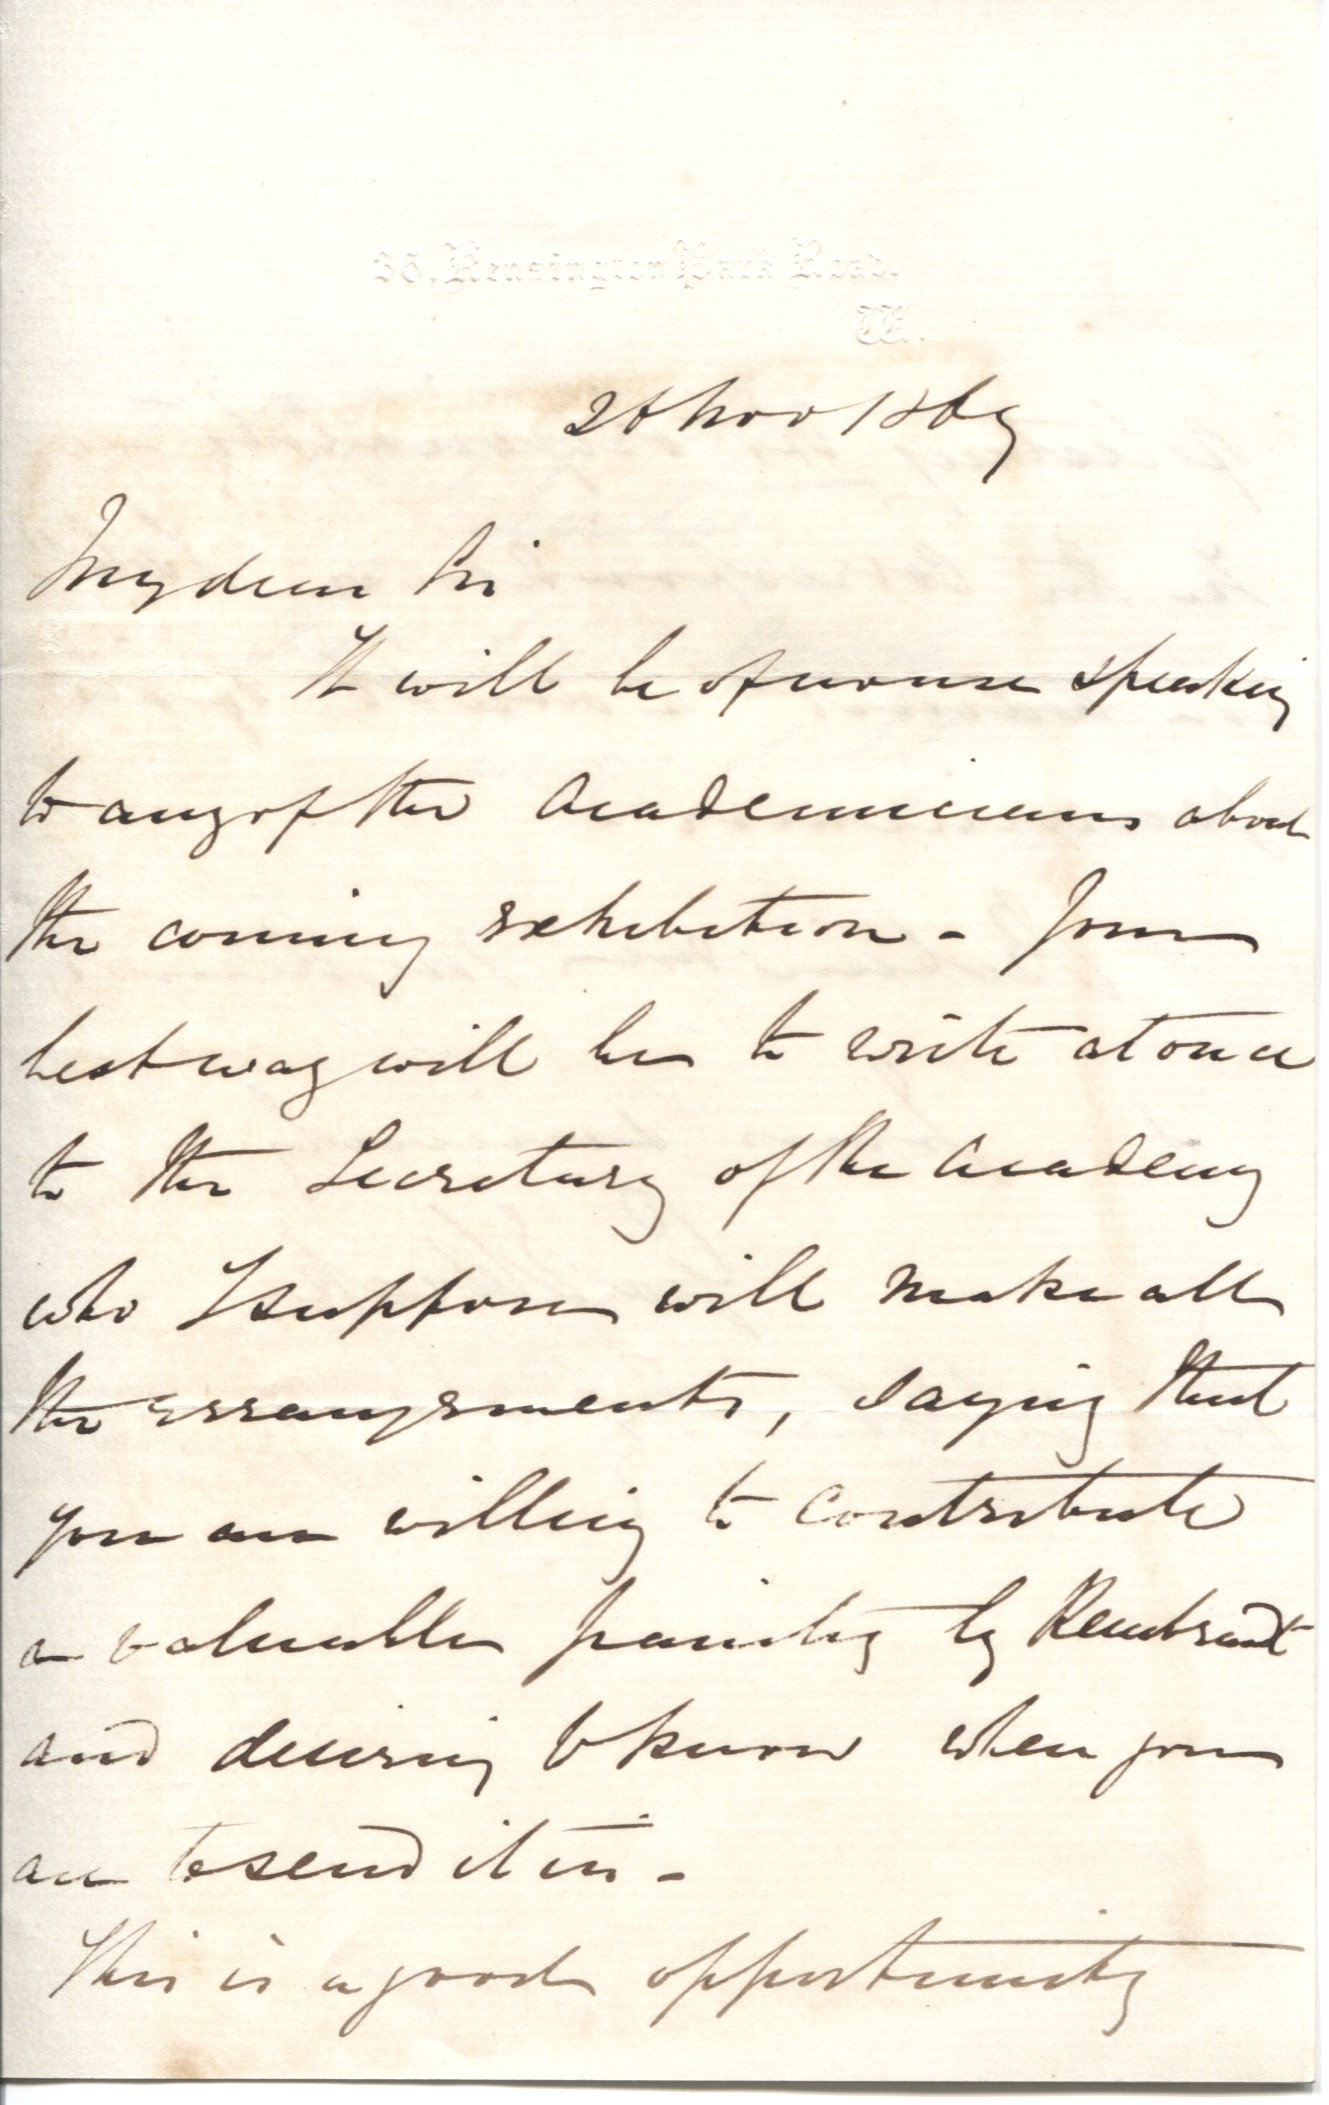 36, Kensington Park Road.
W.
26 Nov 1869
My dear Sir
It will be of no use speaking
to any of the Academicians about
the coming exhibition - Your
best way will be to write at once
to the Secretary of the Academy
who I suppose will make all
the arrangements, saying that
you are willing to contribute
a valuable painting by Rembrandt
and desiring to know when you
are to send it in -
This is a good opportunity